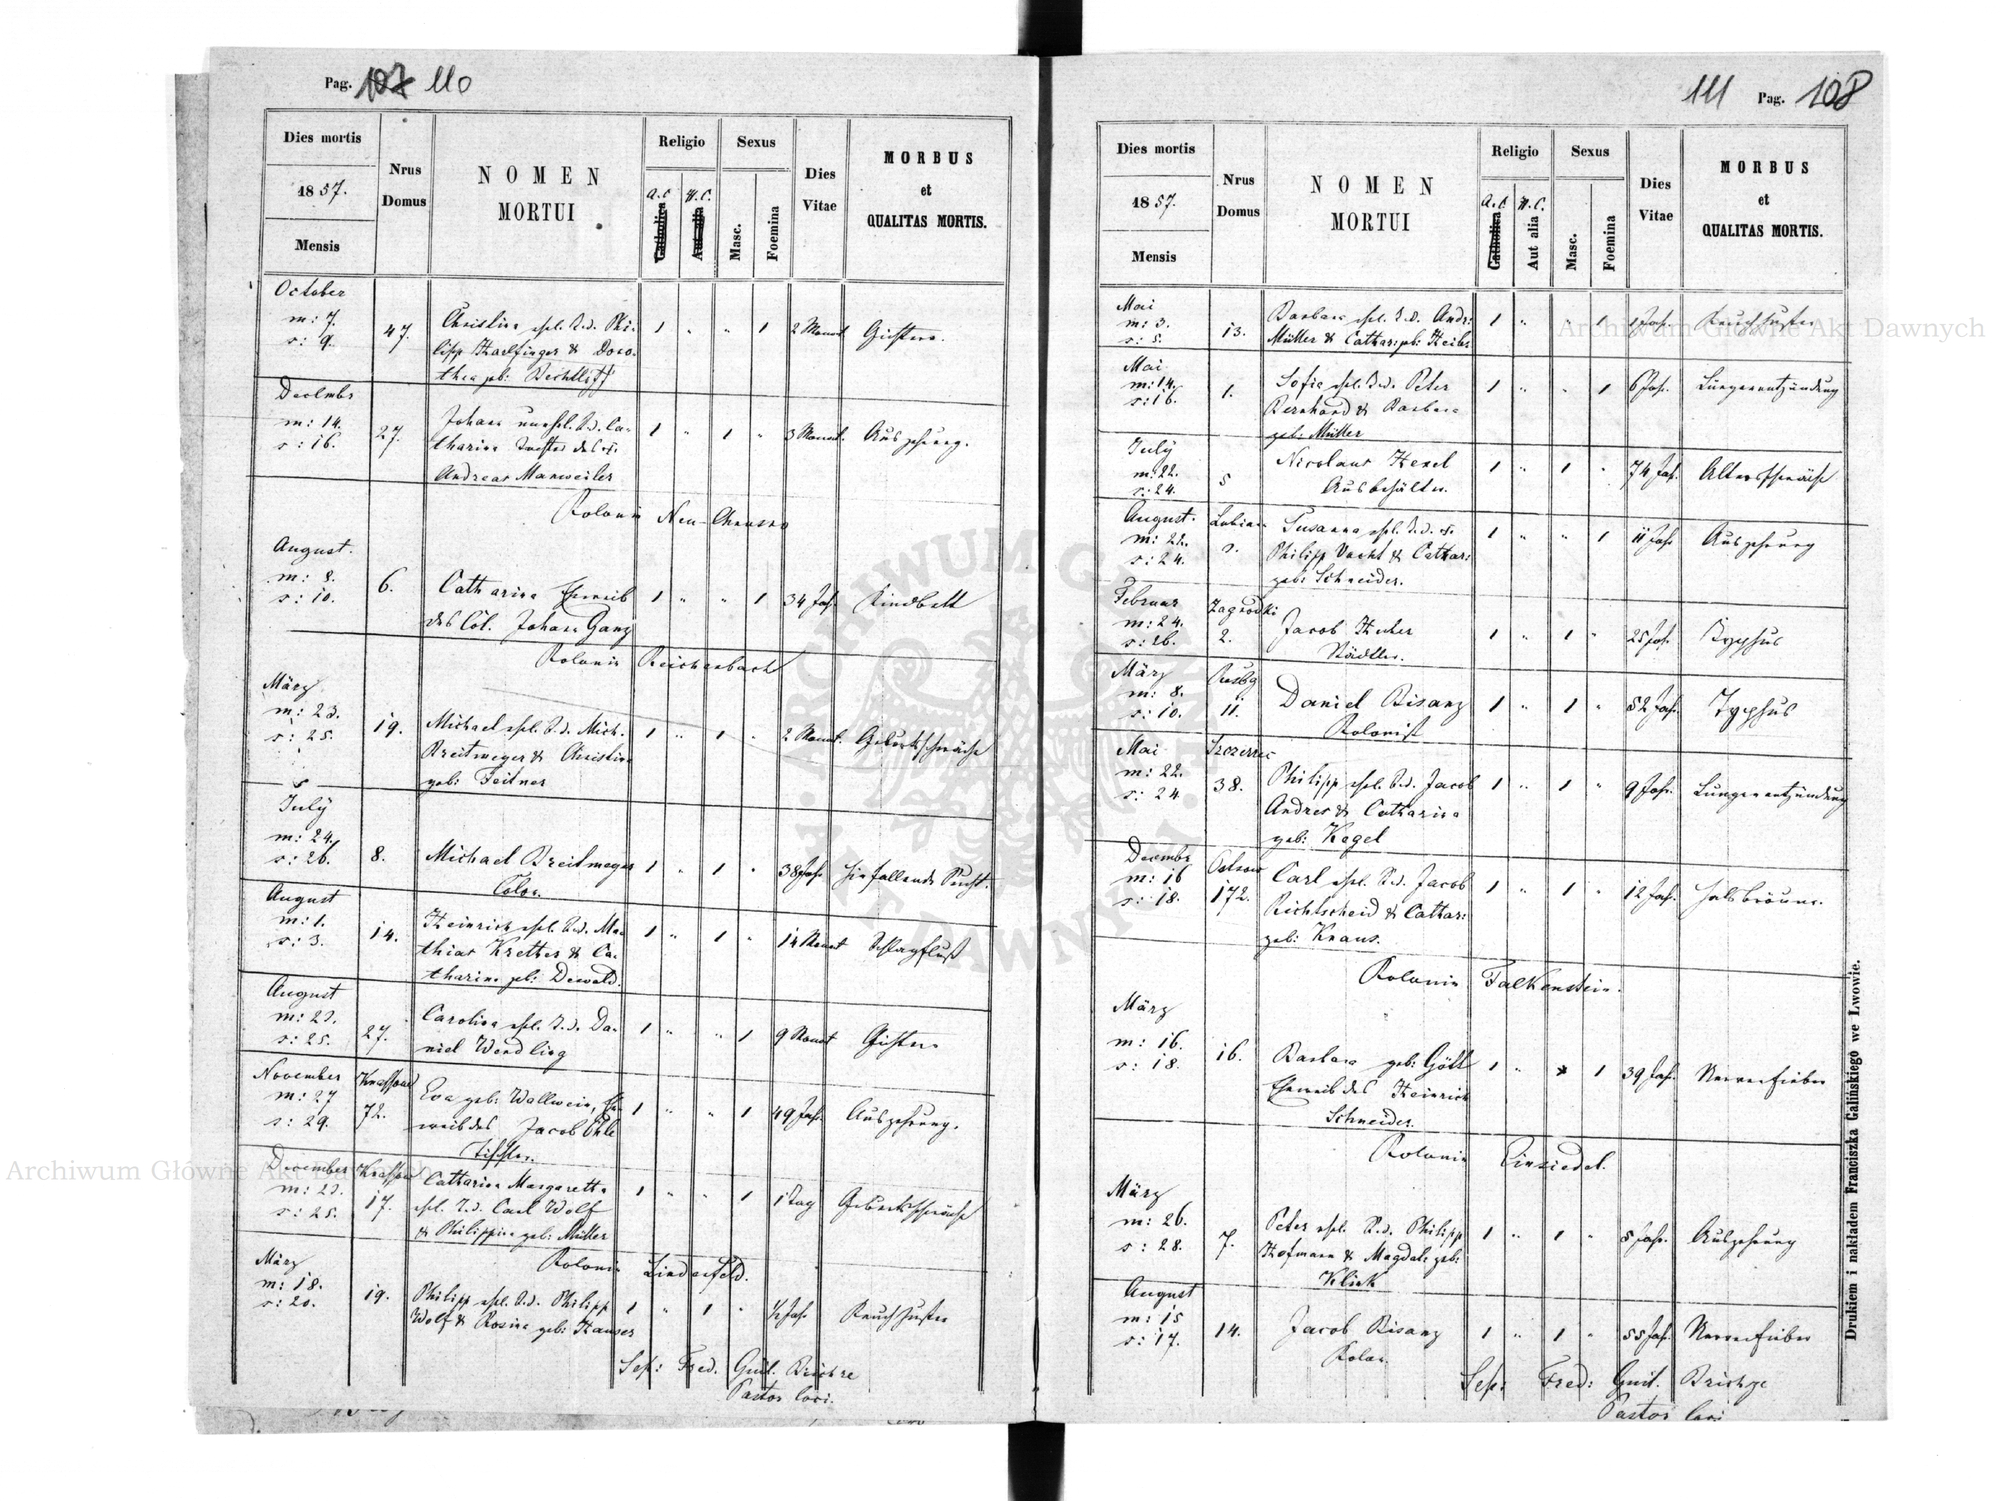 Pag. 107 110
Dies mortis
1857.
Mensis
Nrus Domus
NOMEN MORTUI
Religio
A.C. Catholica
H.C. Aut alia
Sexus
Masc.
Foemina
Dies Vitae
MORBUS
et
QUALITAS MORTIS.
October
m: 7. s: 9. 47. Christina ehl. T.d. Phi-
lipp Karlfinger & Doro-
thea geb: Bechtloff 1 " " 1 2 Monat Gichtern.
Decembr
m: 14. s: 16. 27. Johann unehl. S.d. Ca-
tharina Tochter des
Andreas Manweiler 1 " 1 " 3 Monat. Auszehrung.
Kolonie Neu-Chrusno
August.
m: 8. s: 10. 6. Catharina Eheweib
des Col. Johann Ganz 1 " " 1 34 Jah. Kindbett
Kolonie Reichenbach
März
m: 23. s: 25. 19. Michael ehl. S.d. Mich.
Breitmeyer & Christina
geb: Feitner 1 " 1 " 2 Monat. Geburtsschwäche
July
m: 24. s: 26. 8. Michael Breitmeyer
Colon. 1 " 1 " 38 Jah. Hinfallende Sucht.
August
m: 1. s: 3. 14. Heinrich ehl. S.d. Ma-
thias Kretter & Ca-
tharina geb: Dewald. 1 " 1 " 14 Monat Schlagfluß
August
m: 23. s: 25. 27. Carolina ehl. T.d. Da-
niel Wendling 1 " " 1 9 Monat Gichtern
November
m: 27 s: 29. 72. Eva geb: Wallwein, Ehe-
weib des Jacob Ohle
Tischler. 1 " " 1 49 Jah. Auszehrung.
December
m: 23. s: 25. 17. Catharina Margaretta
ehl. T.d. Carl Wolf
& Philippina geb: Müller 1 " " 1 1 Tag Geburtsschwäche
Kolonie Lindenfeld.
März
m: 18. s: 20. 19. Philipp ehl. S.d. Philipp
Wolf & Rosina geb: Hauser 1 " 1 " ½ Jah. Keuchhusten
Sep: Fred. Guil.
Pastor loci.
111 Pag. 108
Dies mortis
1857.
Mensis
Nrus Domus
NOMEN MORTUI
Religio
A.C. Catholica
H.C. Aut alia
Sexus
Masc.
Foemina
Dies Vitae
MORBUS
et
QUALITAS MORTIS.
Mai
m: 3. s: 5. 13. Barbara ehl. T.d. Andr:
Müller & Cathar: geb: 1 " " 1 1 Jah. Keuchhusten
Mai
m: 14. s: 16. 1. Sofia ehl. T.d. Peter
Bernhard & Barbara
geb: Müller 1 " " 1 6 Jah. Lungenentzündung
July
m: 22. s: 24. 5 Nicolaus Hexel
Ausbehälter. 1 " 1 " 74 Jah. Altersschwäche
August.
m: 22. s: 24. Susanna ehl. T.d.
Philipp Vacht & Cathar:
geb: Schneider. 1 " " 1 11 Jah. Auszehrung
Februar
m: 24. s: 26. Zagrodki 2. Jacob Huber 1 " 1 " 25 Jah. Typhus
März
m: 8. s: 10. 11. Daniel Bisanz
Kolonist 1 " 1 " 52 Jah. Typhus
Mai
m: 22. s: 24 Szczerzec 38. Philipp ehl. S.d. Jacob
Andres & Catharina
geb: Kegel 1 " 1 " 9 Jah. Lungenentzündung
Decembr
m: 16 s: 18. 172. Carl ehl. S.d. Jacob
Richtscheid & Cathar:
geb: Kraus. 1 " 1 " 12 Jah. Halsbräune.
Kolonie Falkenstein.
März
m: 16. s: 18. 16. Barbara geb: Gött
Eheweib des Heinrich
Schneider. 1 " 1 39 Jah. Nervenfieber
Kolonie Einsiedel.
März
m: 26. s: 28. 7. Peter ehl. S.d. Philipp
Hofmann & Magdal: geb:
Klink 1 " 1 " 5 Jah. Auszehrung
August
m: 15 s: 17. 14. Jacob Bisanz
Kolon. 1 " 1 " 55 Jah. Nervenfieber
Sep: Fred: Guil.
Pastor loci
Drukiem i nakładem Franciszka Galińskiego we Lwowie.
Archiwum Główne Akt Dawnych
Archiwum Główne Akt Dawnych